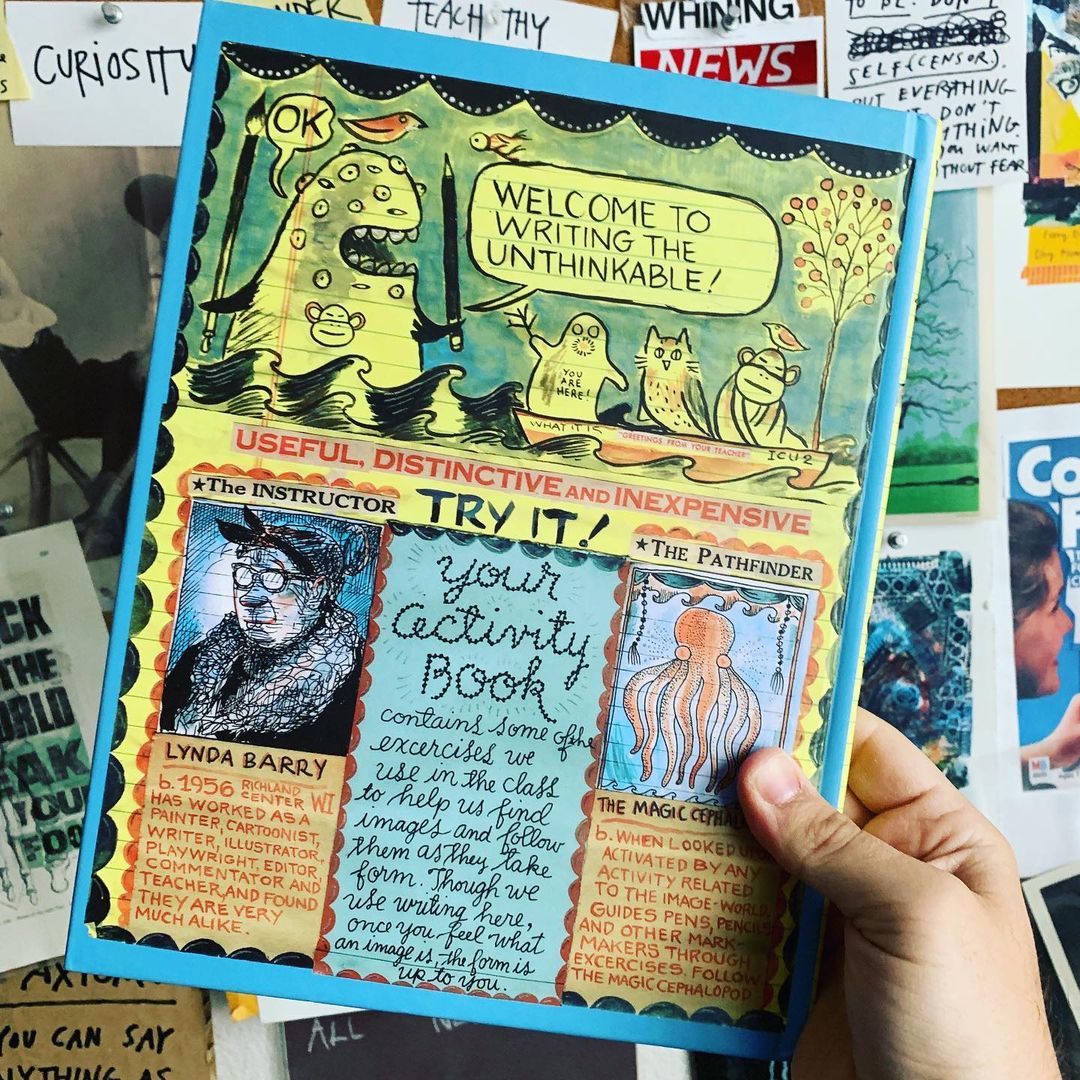 CURIOSITY
TEACH THY
WHINING
NEWS
TO BE. DON'T
SELF(CENSOR).
BUT EVERYTHING
DON'T
YOU WANT
WITHOUT FEAR
OK
WELCOME TO
WRITING THE
UNTHINKABLE!
YOU
ARE
HERE!
WHAT IT IS
"GREETINGS FROM YOUR TEACHER"
ICU2
USEFUL, DISTINCTIVE AND INEXPENSIVE
TRY IT!
★The INSTRUCTOR
LYNDA BARRY
b. 1956 RICHLAND
CENTER WI
HAS WORKED AS A
PAINTER, CARTOONIST,
WRITER, ILLUSTRATOR,
PLAYWRIGHT, EDITOR,
COMMENTATOR AND
TEACHER, AND FOUND
THEY ARE VERY
MUCH ALIKE.
your
activity
Book
contains some of the
excercises we
use in the class
to help us find
images and follow
them as they take
form. Though we
use writing here,
once you feel what
an image is, the form is
up to you.
★THE PATHFINDER
THE MAGIC CEPHAL
b. WHEN LOOKED UP
ACTIVATED BY ANY
ACTIVITY RELATED
TO THE IMAGE-WORLD.
GUIDES PENS, PENCILS
AND OTHER MARK-
MAKERS THROUGH
EXCERCISES. FOLLOW
THE MAGIC CEPHALOPOD
THE
WORLD
YOUR
YOU CAN SAY
ANYTHING AS
ALL